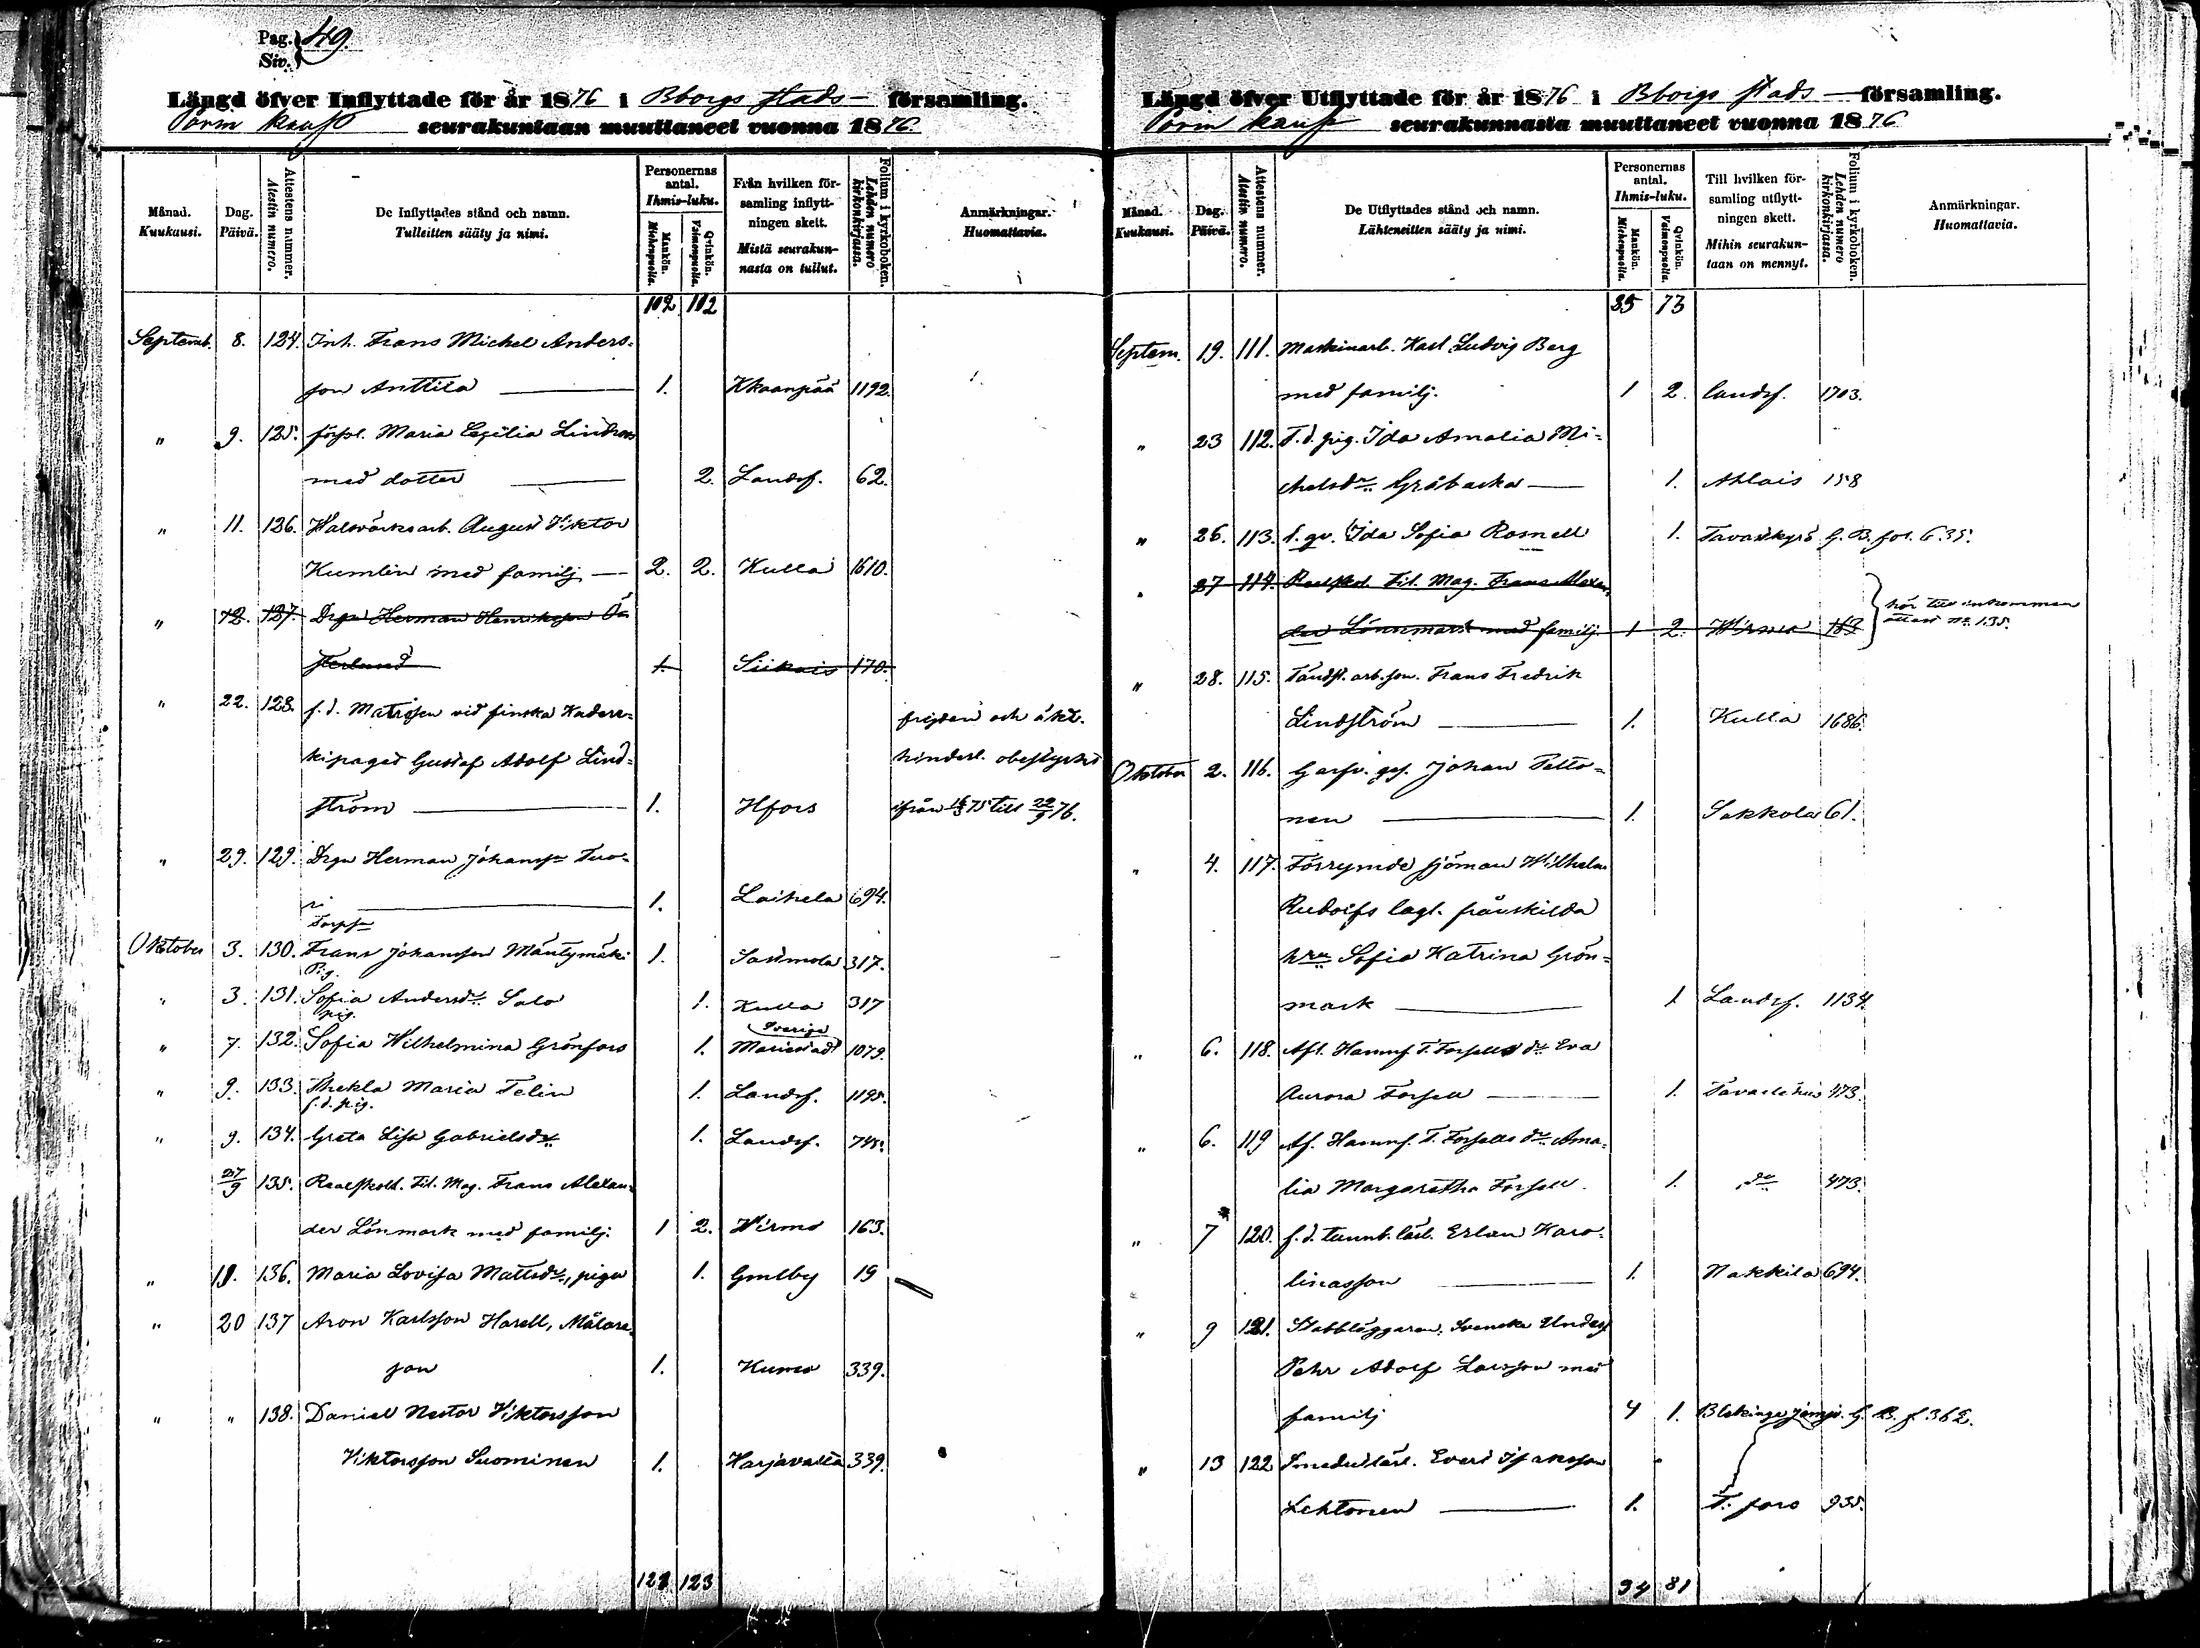 Pag. 49.
Siv.
Längd öfver Inflyttade för år 1876 i Bborgs stads- församling.
seurakuntaan muuttaneet vuonna 1876.
Månad. Kuukausi.
Dag. Päivä.
Attestens nummer. Atestin numero.
De Inflyttades stånd och namn.
Tulleitten sääty ja nimi.
Personernas antal. Ihmis-luku.
Mankön. Miehenpuolta.
Qvinkön. Vaimonpuolta.
Från hvilken församling inflyttningen skett.
Mistä seurakunnasta on tullut.
Folium i kyrkoboken. Lehden numero kirkonkirjassa.
Anmärkningar. Huomattavia.
102 112
Septemb. 8. 124. Inh. Frans Michel Anders-
son Anttila 1. Kkaanpää 1192.
" 9. 125. Maria Cecilia Lindroos
med dotter 2. Landsf. 62.
" 11. 126. August Viktor
Kumlin med familj 2. 2. Kulla 1610.
" 12. 127. Drgn Herman Henriksson Ö
sterlund 1. Siikais 170.
" 22. 128. f. d. Matrosen vid finska Kader-
kipaget Gustaf Adolf Lind-
ström 1. Hfors
frejden och äkt.
hindersl. obestyrkt
ifrån 75 till 22/9 76.
" 29. 129. Drgn Herman Johanss: Tuo-
ri 1. Laihela 694.
Oktober 3. 130. Frans Johansson Mäntymäki 1. Sastmola 317.
Pig.
" 3. 131. Sofia Andersdr Salo 1. Kulla 317
pig. Sverige
" 7. 132. Sofia Wilhelmina Grönfors 1. Mariestad 1079.
" 9. 133. Thekla Maria Felin 1. Landsf. 1195.
f. d. pig.
" 9. 134. Greta Lisa Gabrielsdr 1. Landsf.
27/9 135. Fil. Mag. Frans Alexan-
der Lönmark med familj. 1 2. Wirmo 163.
" 136. Maria Lovisa Mattsdr, piga 1. Gmlby 19
" 20 137 Aron Karlsson Harell, Målare-
son 1. Kumo 339.
" " 138. Daniel Nestor Viktorsson
Viktorsson Suominen 1. Harjavalta 339.
123
Längd öfver Utflyttade för år 1876 i Bborgs stads församling.
seurakunnasta muuttaneet vuonna 1876
Månad. Kuukausi.
Dag. Päivä.
Attestens nummer. Atestin numero.
De Utflyttades stånd och namn.
Lähteneitten sääty ja nimi.
Personernas antal. Ihmis-luku.
Mankön. Miehenpuolta.
Qvinkön. Vaimonpuolta.
Till hvilken församling utflyttningen skett.
Mihin seurakuntaan on mennyt.
Folium i kyrkoboken. Lehden numero kirkonkirjassa.
Anmärkningar. Huomattavia.
85 73
Septem. 19. 111. Maskinarb. Karl Ludvig Berg
med familj. 1 2. landsf. 1703.
" 23 112. F. d. pig. Ida Amalia Mi-
chelsdr Gråbacka 1. Ahlais 158
" 26. 113. Ida Sofia Rosnell 1. Tavastkyrö G. B. fol. 635.
" 27 114. Fil. Mag. Frans Alexan-
der Lönnmark med familj 1 2. Wirmo 163
hör till inkomman
attest № 135.
" 28. 115. Tändst. arb. son. Frans Fredrik
Lindström 1. Kulla 1686.
Oktober 2. 116. Garfv. ges. Johan Petto-
nen 1. Sakkola 61.
" 4. 117. Förrymde sjöman Wilhelm
Rudolfs lagl. frånskilda
hru Sofia Katrina Grön-
mark 1 Landsf. 1134.
" 6. 118. Afl. Hamnf. T. Forsells dr Eva
Aurora Forsell 1. Tavastehus 473.
" 6. 119 Af. Hamnf. T. Forsells dr Ama-
lia Margaretha Forsell. 1. do 473.
" 7 120. f. d. tunnb. lärl. Erland Karo-
linasson 1. Nakkila 694.
" 9 121. Svenske Unders.
Pehr Adolf Larsson med
familj 4 1. Blekinge G. B. f 362.
" 13 122 Smedslärl. Evert Isaksson
Lehtonen 1. T: fors 935.
94 81